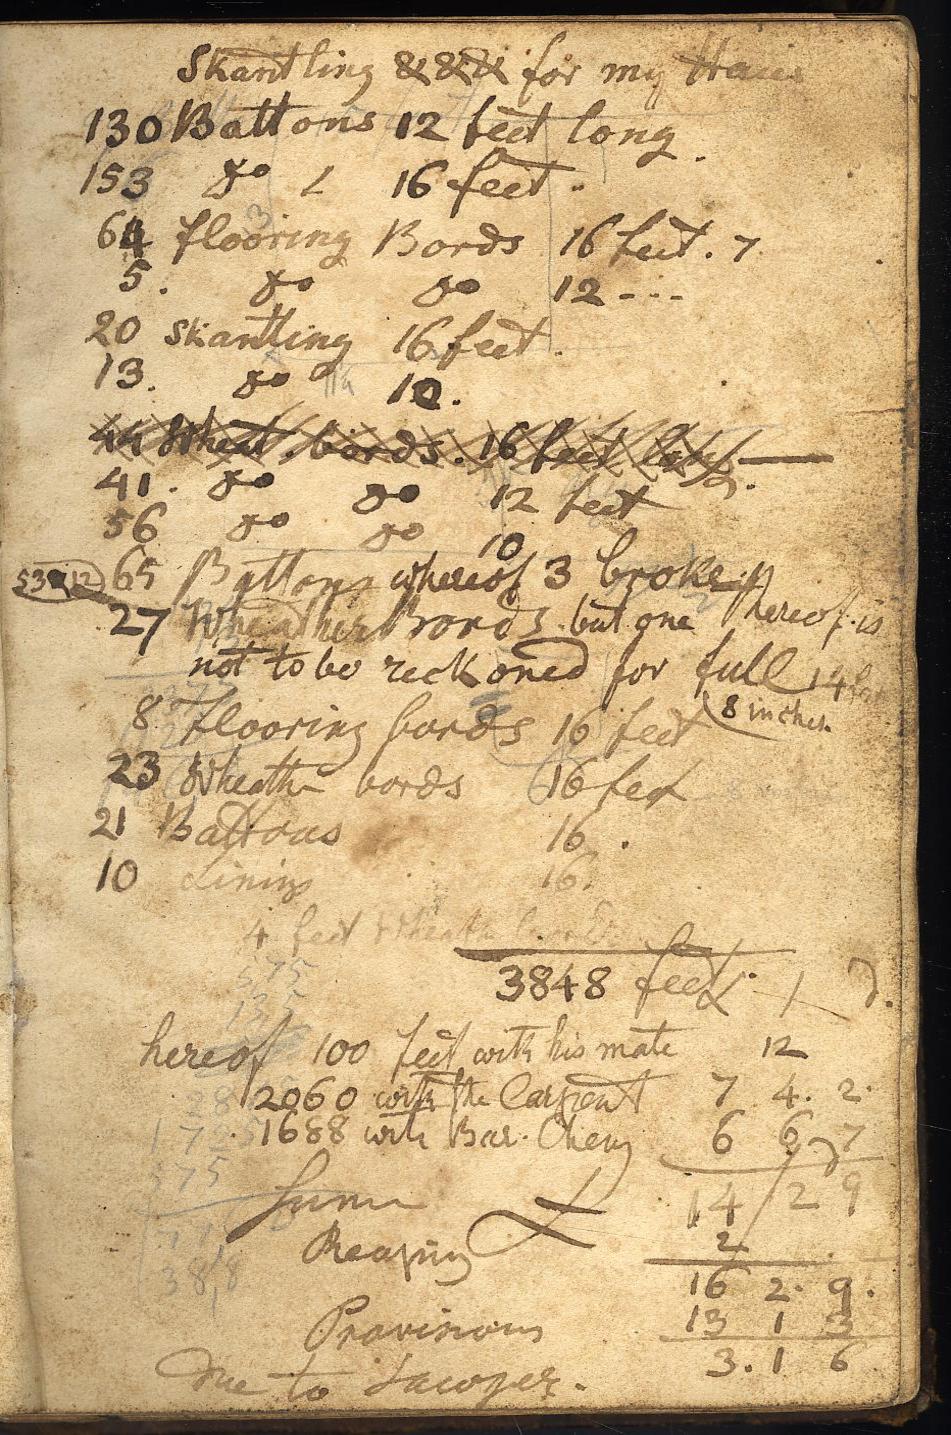 Skantling & & & for my Haus
130 Battons 12 feet long.
153 do 16 feet.
64 flooring Bords 16 feet. 7
5. do do 12 - - -
20 skantling 16 feet.
13. do 10.
44 Wheat. bords. 16 feet long
41. do do 12 feet
56 do do 10
65 Battons whereof 3 broke
27 Wheather Bords. but one hereof is
not to be reckoned for full 14
8 inches.
8 flooring bords 16 feet
23 Wheather bords 16 feet
21 Battons 16.
10 Lining 16.
4 feet Wheath bords
575
3848 feet.
hereof 100 feet with his mate 12
2060 with the Carpent 7 4. 2.
1688 with Bar. Cheny 6 6 7
575
Sum 14 2 9
Reaping 2
16 2. 9.
Provisions 13 1 3
Due to Sawyer. 3. 1 6.